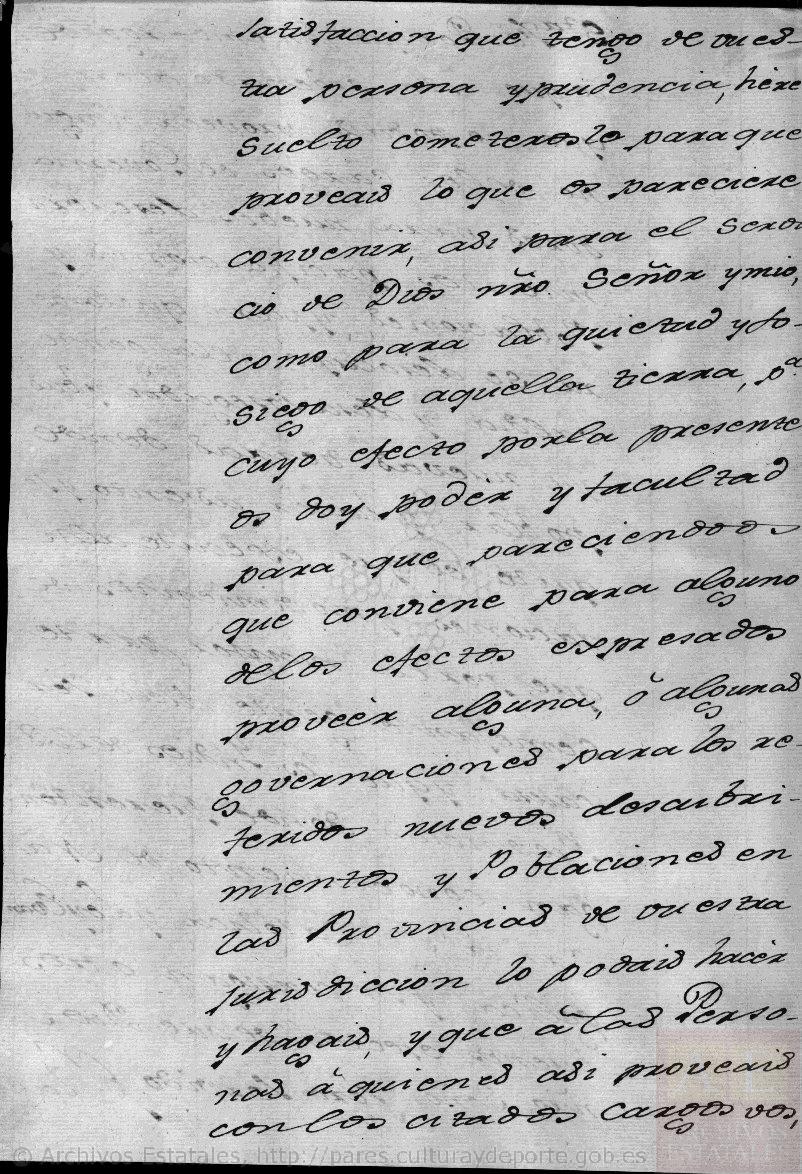 satisfaccion que tengo de vues-
tra persona y prudencia, hè re
suelto cometeroslo para que
proveais lo que os pareciere
convenir, asi para el servi
cio de Dios nr̃o. Señor y mio,
como para la quietud y so-
siego de aquella tierra, pª.
cuyo efecto por la presente
os doy poder y facultad
para que pareciendoos
que conviene para alguno
de los efectos expresados
proveèr alguna, ò algunas
governaciones para los re-
feridos nuevos descubri-
mientos y Poblaciones en
las Provincias de vuestra
jurisdiccion lo podais hacèr
y hagais, y que à las Perso-
nas à quienes asi proveais
con los citados cargos vos,
© Archivos Estatales, http://pares.culturaydeporte.gob.es